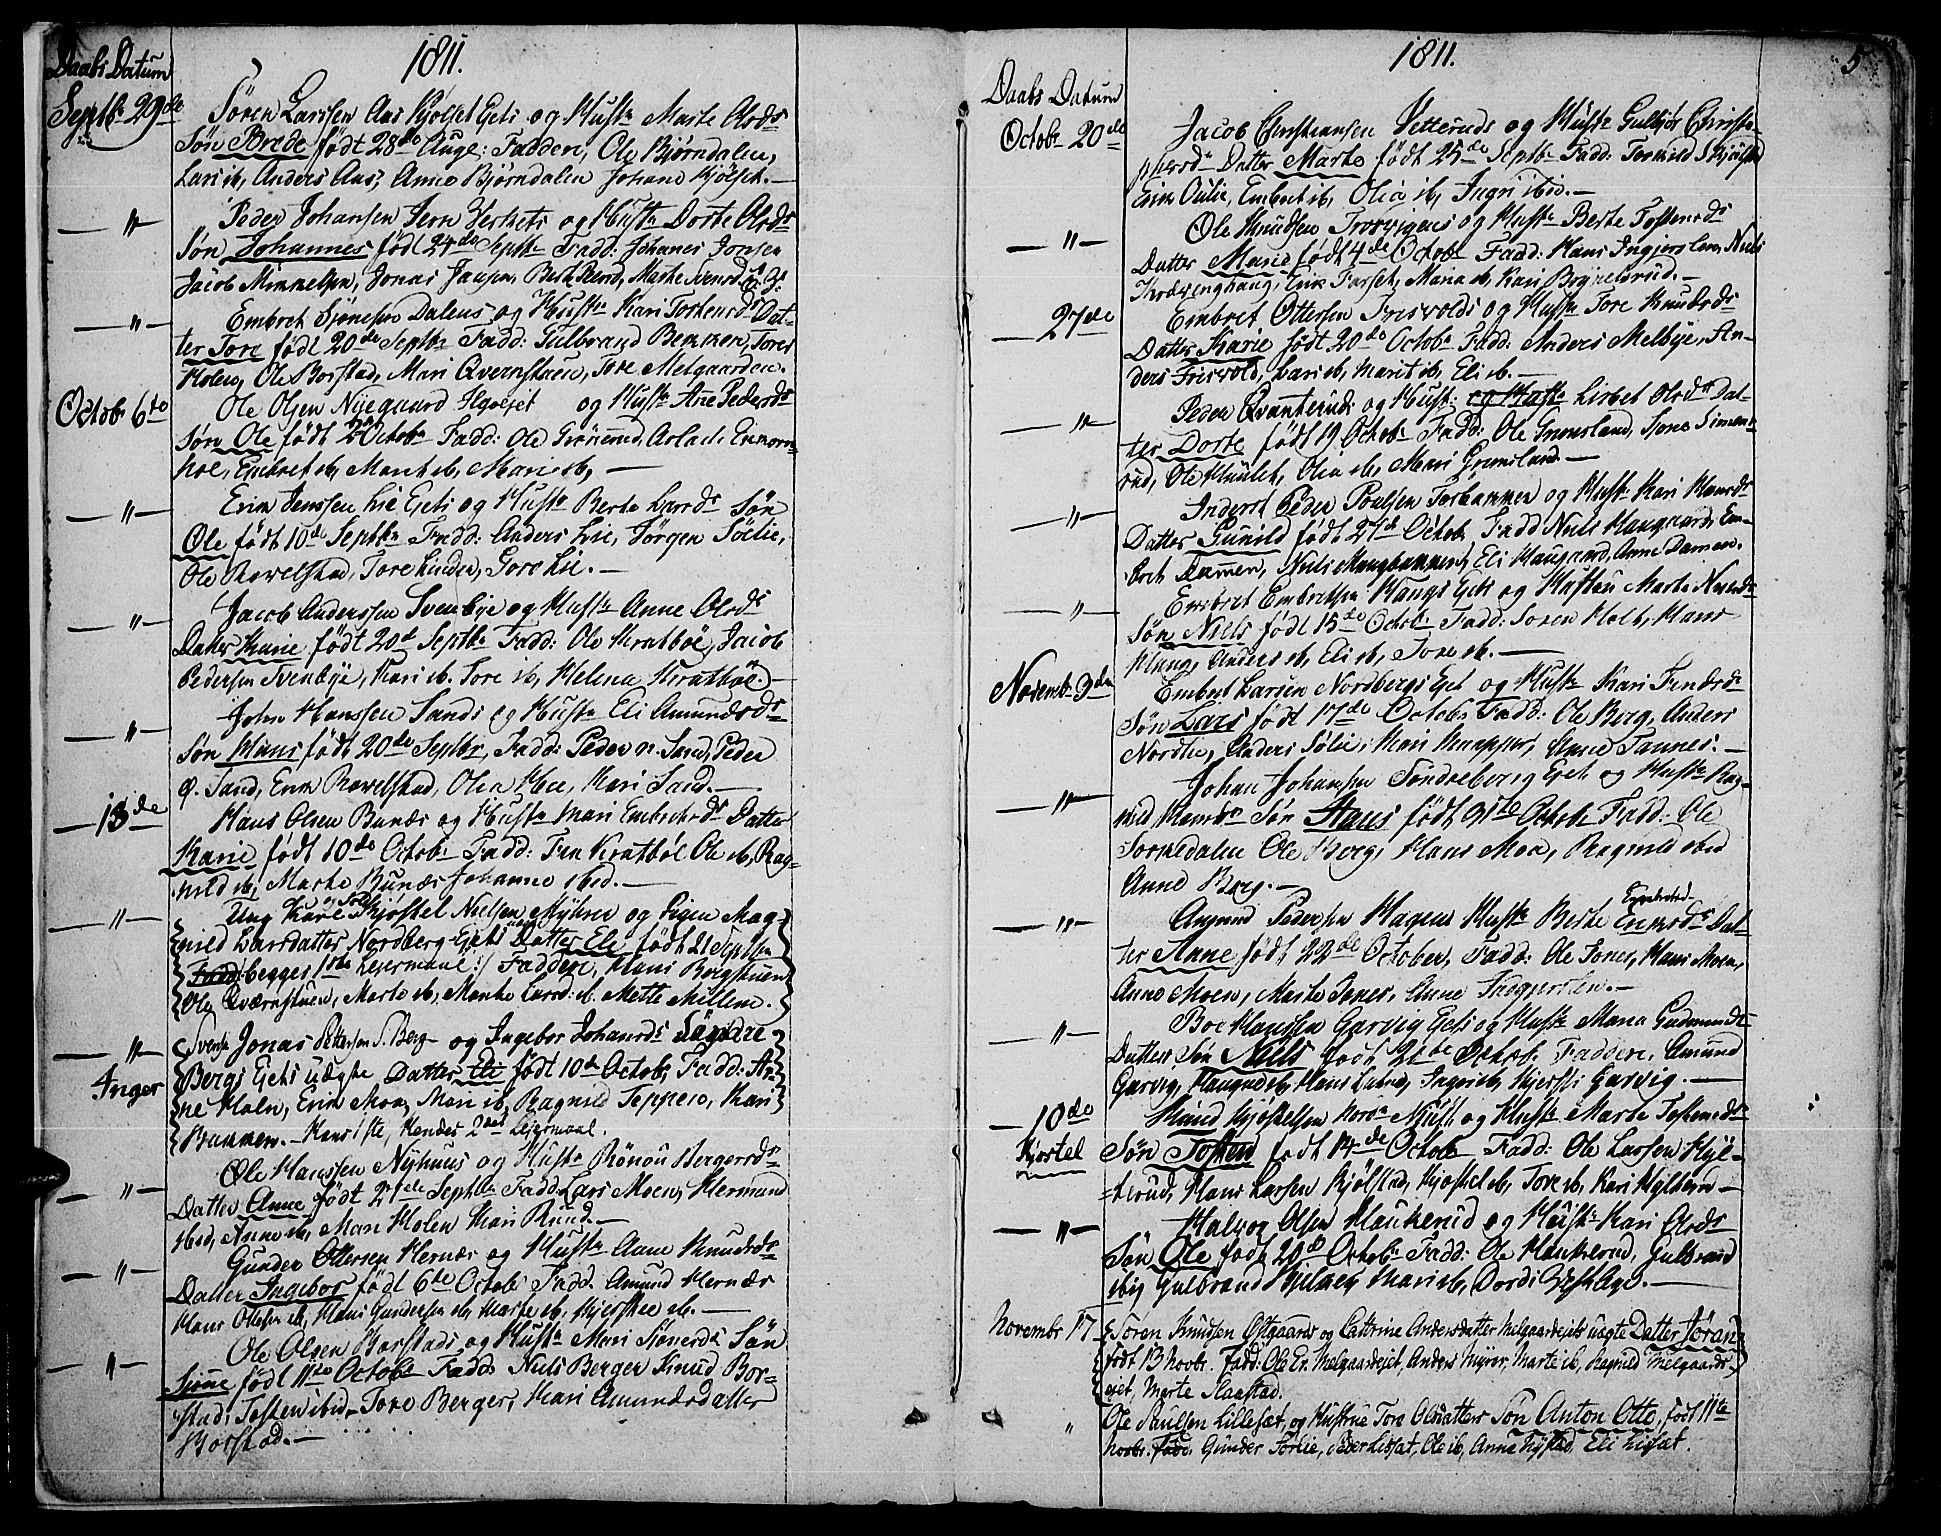 Daabs Datum
1811.
Septbr 29de
Søren Larssen Aas Kjølset Eets og Hustr Marte Olsdr
Søn Brede født 28de Aug: Faddere, Ole Bjørndalen,
Lars ib, Anders Aas, Anne Bjørndalen Johane Kjølset.
"
Peder Johansen Jern Verkets og Hustr Dorte Olsdr
Søn Johannes født 24de Septbr Fadd: Johanes Jonsen
Jacob Mimmelsen, Jonas Jansen, Berte Pedersd, Marte Svensd
"
Embret Siønesen Dalens og Hustr Kari Tostensdr Dat-
ter Tore født 20de Septbr Fadd: Gulbrand Bekken, Tores
Holen, Ole Borstad, Mari Qvernstuen, Tore Melgaarden.
Octobr 6te
Ole Olsen Nygaard og Hustr Ane Pedersdr
Søn Ole født 2d Octobr Fadd: Ole Grønerud, Aslach
hoe, Embret ib, Marit ib, Mari ib,
"
Erik Jenssen Lie Eets og Hustr Berte Larsdr Søn
Ole født 10de Septbr Fadd: Anders Lie, Jørgen Sølie,
Ole Ravelstad, Tore Linder, Gore Lie.
"
Jacob Anderssen Svenbye og Hustr Anne Olsdr
Datter Karie født 20d Septbr Fadd: Ole Kratböe, Jacob
Pedersen Svenbye, Kari ib. Tore ib, Helena Kratböe.
"
John Hanssen Sands og Hustr Eli Amundsdr
Søn Hans født 20de Septbr, Fadd: Peder n. Sand, Peder
Ø. Sand, Erik Ravelstad, Olea Moe, Kari Sand.
13de
Hans Olsen Bunæs og Hustr Mari Embretsdr Datter
Karie født 10de Octobr Fadd: Kratböl Ole ib, Rag-
nild ib, Marte Bunæs Johanne ibid.
"
Ung Karl Kjøstel Nielsen Myhrer og Pigen Rag-
nild Larsdatter Nordberg Eets Datter Eli født 21 Septbr
begges 1ste Leiermaal :/ Faddere, Hans Bergstuen
Ole Qværnstuen, Marte ib, Marte Larsd: ib. Mette Millem.
"
Inger
Svensk Jonas Pettersen S. Berg og Ingebor Johansdr Søndre
Bergs Eets uægte Datter Eli født 10de Octob, Fadd: Ar-
ne Holen, Erik Moa, Mari ib, Ragnild Teppen, Kari
Bakken. Hans 1ste, Hendes 2den Leiermaal.
"
Ole Hanssen Nyhuus og Hustr Rønou Bergersdr
Datter Anne født 27de Septbr Fadd: Lars Moen, Hermand
ibid, Anne ib, Mari Holen Kari Ruud.
"
Gunder Ottersen Hernæs og Hustr Anne Knudsdr
Datter Ingebor født 6te Octobr Fadd: Amund Hernæs
Hans Ottesen ib, Hans Gundersen ib, Marte ib, Kjerstie ib.
"
Ole Olsen Borstads og Hustr Mari Siønesdr Søn
Siøne født 11te Octobr Fadd: Niels Berger Knud Bor-
stad, Tosten ibid, Tore Berger, Mari Amundsdatter
Borstad.
1811.
5
Daabs Datum
Octobr 20de
Jacob Christiansen Vetteruds og Hustr Gulbjør Christo-
phersdr Datter Marte født 25de Septbr Fadd: Torkild
Erik Aulie, Embret ib, Olia ib, Ingri ibid.
"
Ole Knudsen Trosvigens og Hustr Berte Tostensdr
Datter Marie født 4de Octobr Fadd: Hans Ingierslen, Niels
Kræmmerhaug, Erik Farset, Maria ib, Kari Brynildsrud.
27de
Embret Ottersen Frisvolds og Hustr Tore Knudsdr
Datter Karie født 20de Octobr Fadd: Anders Melbye, An-
ders Frisvold, Lars ib, Marit ib, Eli ib.
"
Peder Qvanterud og Hust: og Hustr Lisbet Olsdr Dat-
ter Dorte født 19 Octobr Fadd: Ole Grønsland, Sjone Simen-
rud, Ole Huulet, Olia ib, Mari Grønsland.
"
Inderst Peder Poulsen Torhammer og Hustr Kari Hansdr
Datter Gunild født 27de Octob, Fadd Niels Haugaard, Em-
bret Dammen, Niels Haugbakken, Eli Haugaard, Anne Dammen.
"
Embret Embretsen Haugs Eet og Hustru Marte Nielsdr
Søn Niels født 15de Octobr Fadd: Søren Holt, Hans
Haug, Anders ib, Eli ib, Tore ib.
Novembr 3die
Embret Larsen Nordbergs Eet og Hustr Kari
Søn Lars født 17de Octobr Fadd: Ole Berg, Anders
Nordlie, Anders Sølie, Kari Knapper, Anne Tannes.
"
Johan Johansen Søndreberg Eet og Hustr Rag-
nild Hansdr Søn Hans født 31te Octobr Fadd: Ole
Sormedalen Ole Berg, Hans Moa, Ragnild ibid
Anne Berg.
"
Amund Pedersen Hagens Hustr Berte Embretsd Erichsdr Dat-
ter Anne født 22de October, Fadd: Ole Jones, Hans Moen,
Anne Moen, Marte Jones, Anne Ingierslen.
"
Boe Hanssen Garvig Eets og Hustr Maria Gudmundsdr
Datter Søn Niels født 21de Octobr Faddere. Amund
Garvig, Haagen ib, Hans Lund, Ingeri ib, Kjersti Garvig.
10de
Kjøstel
Knud Kjøstelsen Nord Nysti og Hustr Marte Tostensdr
Søn Tosten født 14de Octobr Fadd: Ole Larsen Hyl-
terud, Hans Larsen Kjølstad, Kjøstel ib, Tore ib, Kari Hylterud
"
Halvor Olsen Haukerud og Hustr Kari Olsdr
Søn Ole født 20de Octobr Fadd: Ole Haukerud, Gulbrand
ib, Gulbrand Kjelaas, Mari ib, Dordi Westlye.
Novembr 17
Søren Knudsen Ostgaards og Cathrine Andersdatter Melgaardejets uægte Datter Jøran
født 13 Novbr. Fadd: Ole Er. Melgaardejet, Anders Myrer, Marte ib, Ragnild Melgaards-
ejet, Marte Flaastad.
"
Ole Paulsen Lillesæt og Hustrue Tore Olsdatter Søn Anton Otto, født 11te
Novbr. Fadd: Gunder Sørlie, Peder Lisæt, Ole ib, Anna Nystad, Eli Lisæt.